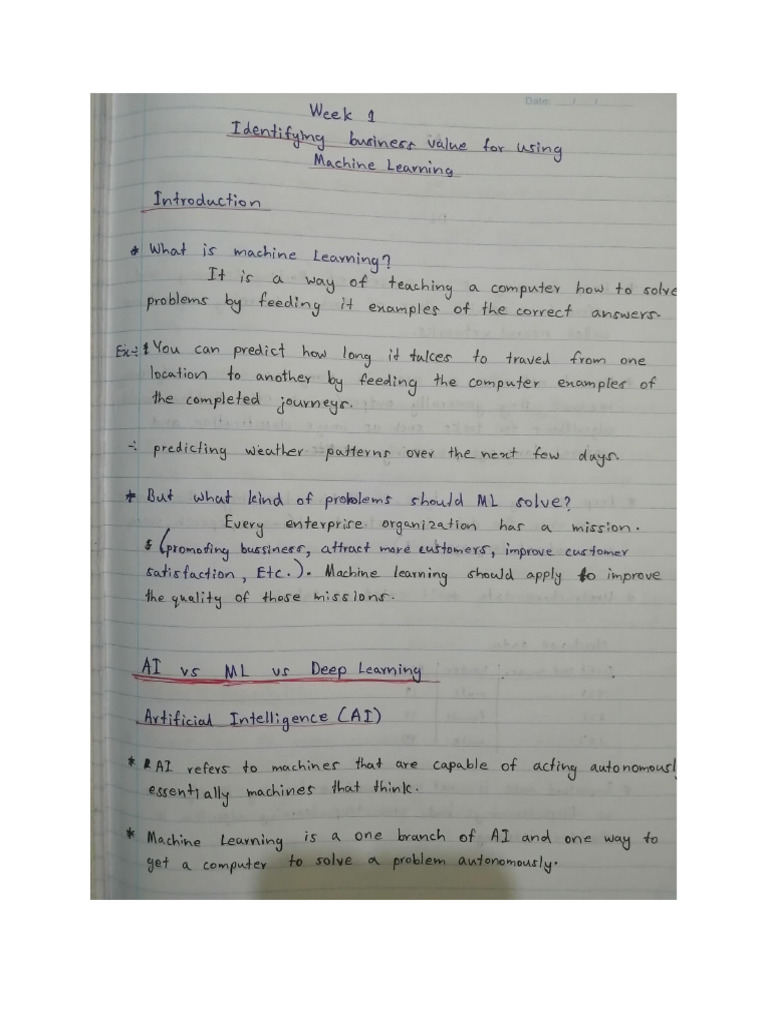 Date: __/__/__
Week 1
Identifying business value for using
Machine Learning
Introduction
* What is machine Learning?
It is a way of teaching a computer how to solve
problems by feeding it examples of the correct answers.
Ex:- You can predict how long it takes to traved from one
location to another by feeding the computer examples of
the completed journeys.
-: predicting weather patterns over the next few days.
* But what kind of problems should ML solve?
Every enterprise organization has a mission.
(promoting bussiness, attract more customers, improve customer
satisfaction, Etc.). Machine learning should apply to improve
the quality of those missions.
AI vs ML vs Deep Learning
Artificial Intelligence (AI)
* AI refers to machines that are capable of acting autonomously
essentially machines that think.
* Machine Learning is a one branch of AI and one way to
get a computer to solve a problem autonomously.